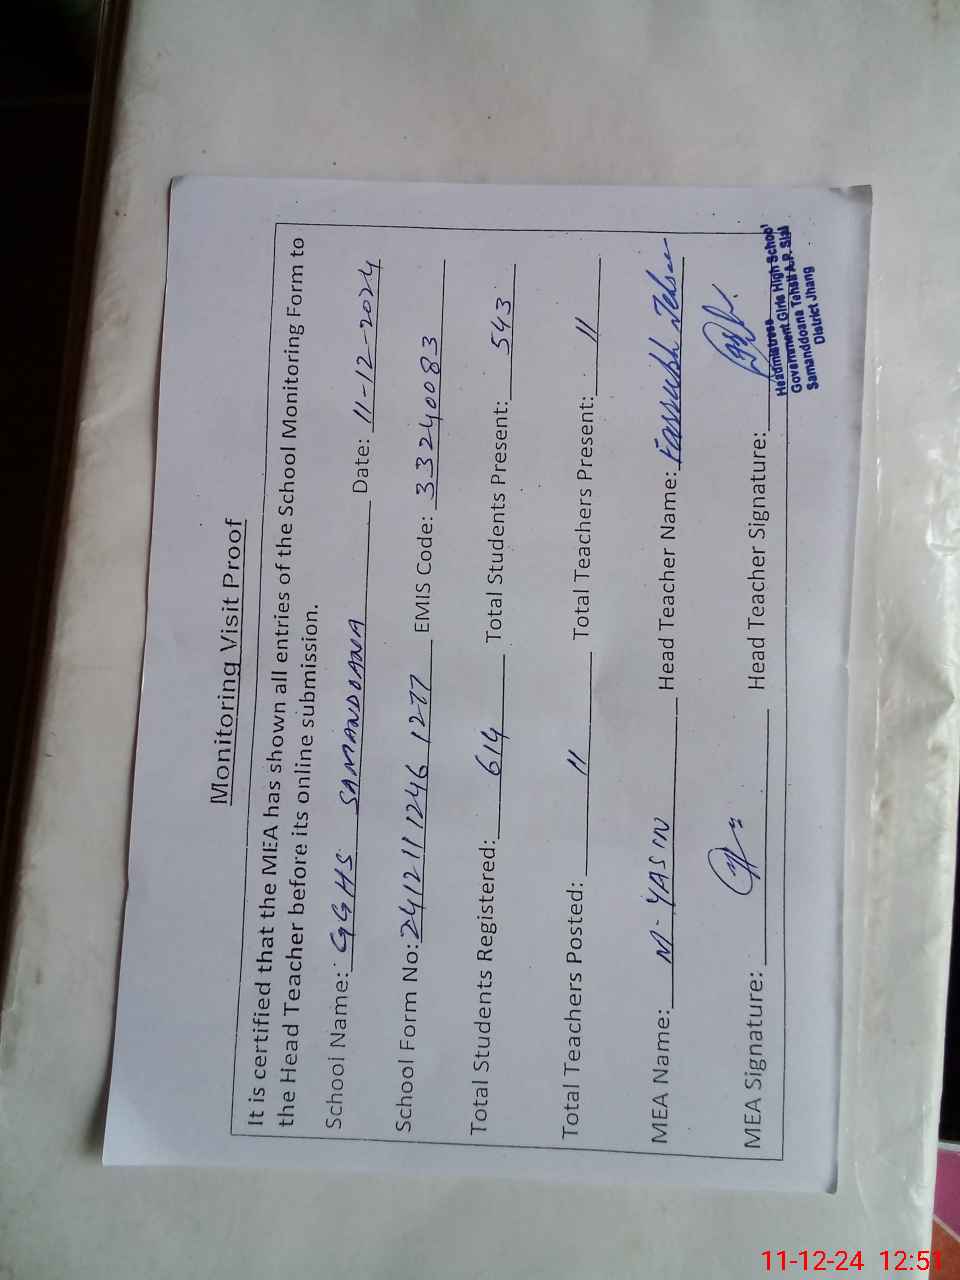 Monitoring Visit Proof
It is certified that the MEA has shown all entries of the School Monitoring Form to
the Head Teacher before its online submission.
School Name: GGHS SAMANDOANA Date: 11-12-2024
School Form No: 24121111246 1277 EMIS Code: 33240083
Total Students Registered: 614 Total Students Present: 543
Total Teachers Posted: 11 Total Teachers Present: 11
MEA Name: M-YASIN Head Teacher Name:
MEA Signature: Head Teacher Signature:
Headmistress
Government Girls High School
Samanddoana Tehsil A.P. Sial
District Jhang
11-12-24 12:51